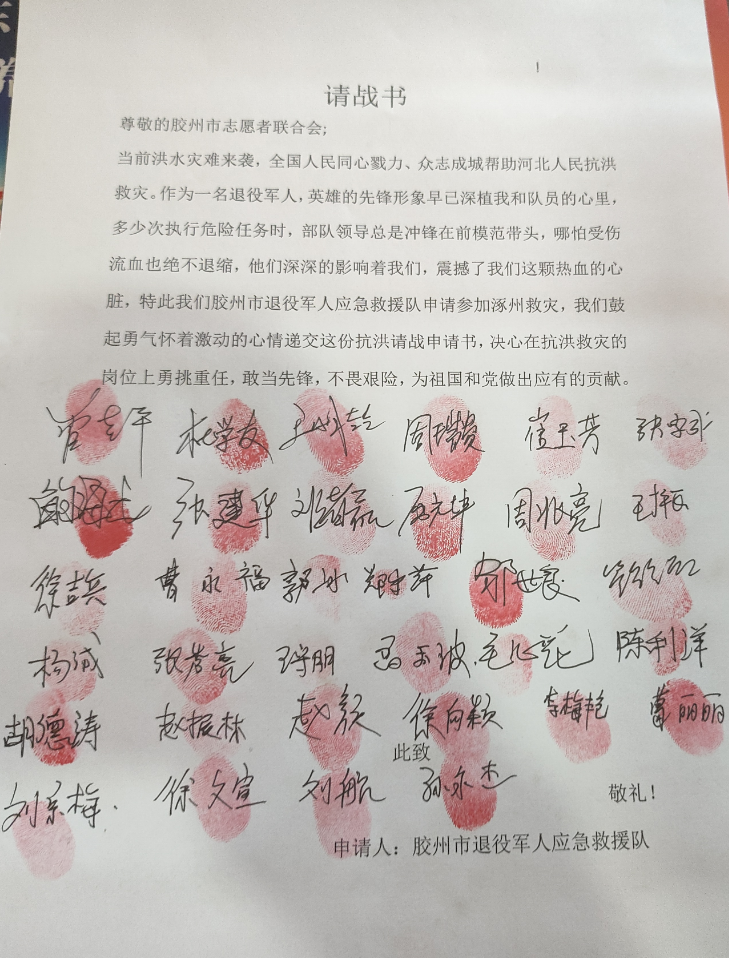 请战书
尊敬的胶州市志愿者联合会;
当前洪水灾难来袭，全国人民同心戮力、众志成城帮助河北人民抗洪
救灾。作为一名退役军人，英雄的先锋形象早已深植我和队员的心里，
多少次执行危险任务时，部队领导总是冲锋在前模范带头，哪怕受伤
流血也绝不退缩，他们深深的影响着我们，震撼了我们这颗热血的心
脏，特此我们胶州市退役军人应急救援队申请参加涿州救灾，我们鼓
起勇气怀着激动的心情递交这份抗洪请战申请书，决心在抗洪救灾的
岗位上勇挑重任，敢当先锋，不畏艰险，为祖国和党做出应有的贡献。
杜学友 崔玉芳
张建华 周兆亮
徐吉兵 曹永福 郭冰
杨诚 陈利洋
胡德涛 赵振林 赵毅 徐向颖 李梅艳 董丽丽
此致
徐文宣 刘航 孙永杰
敬礼！
申请人：胶州市退役军人应急救援队